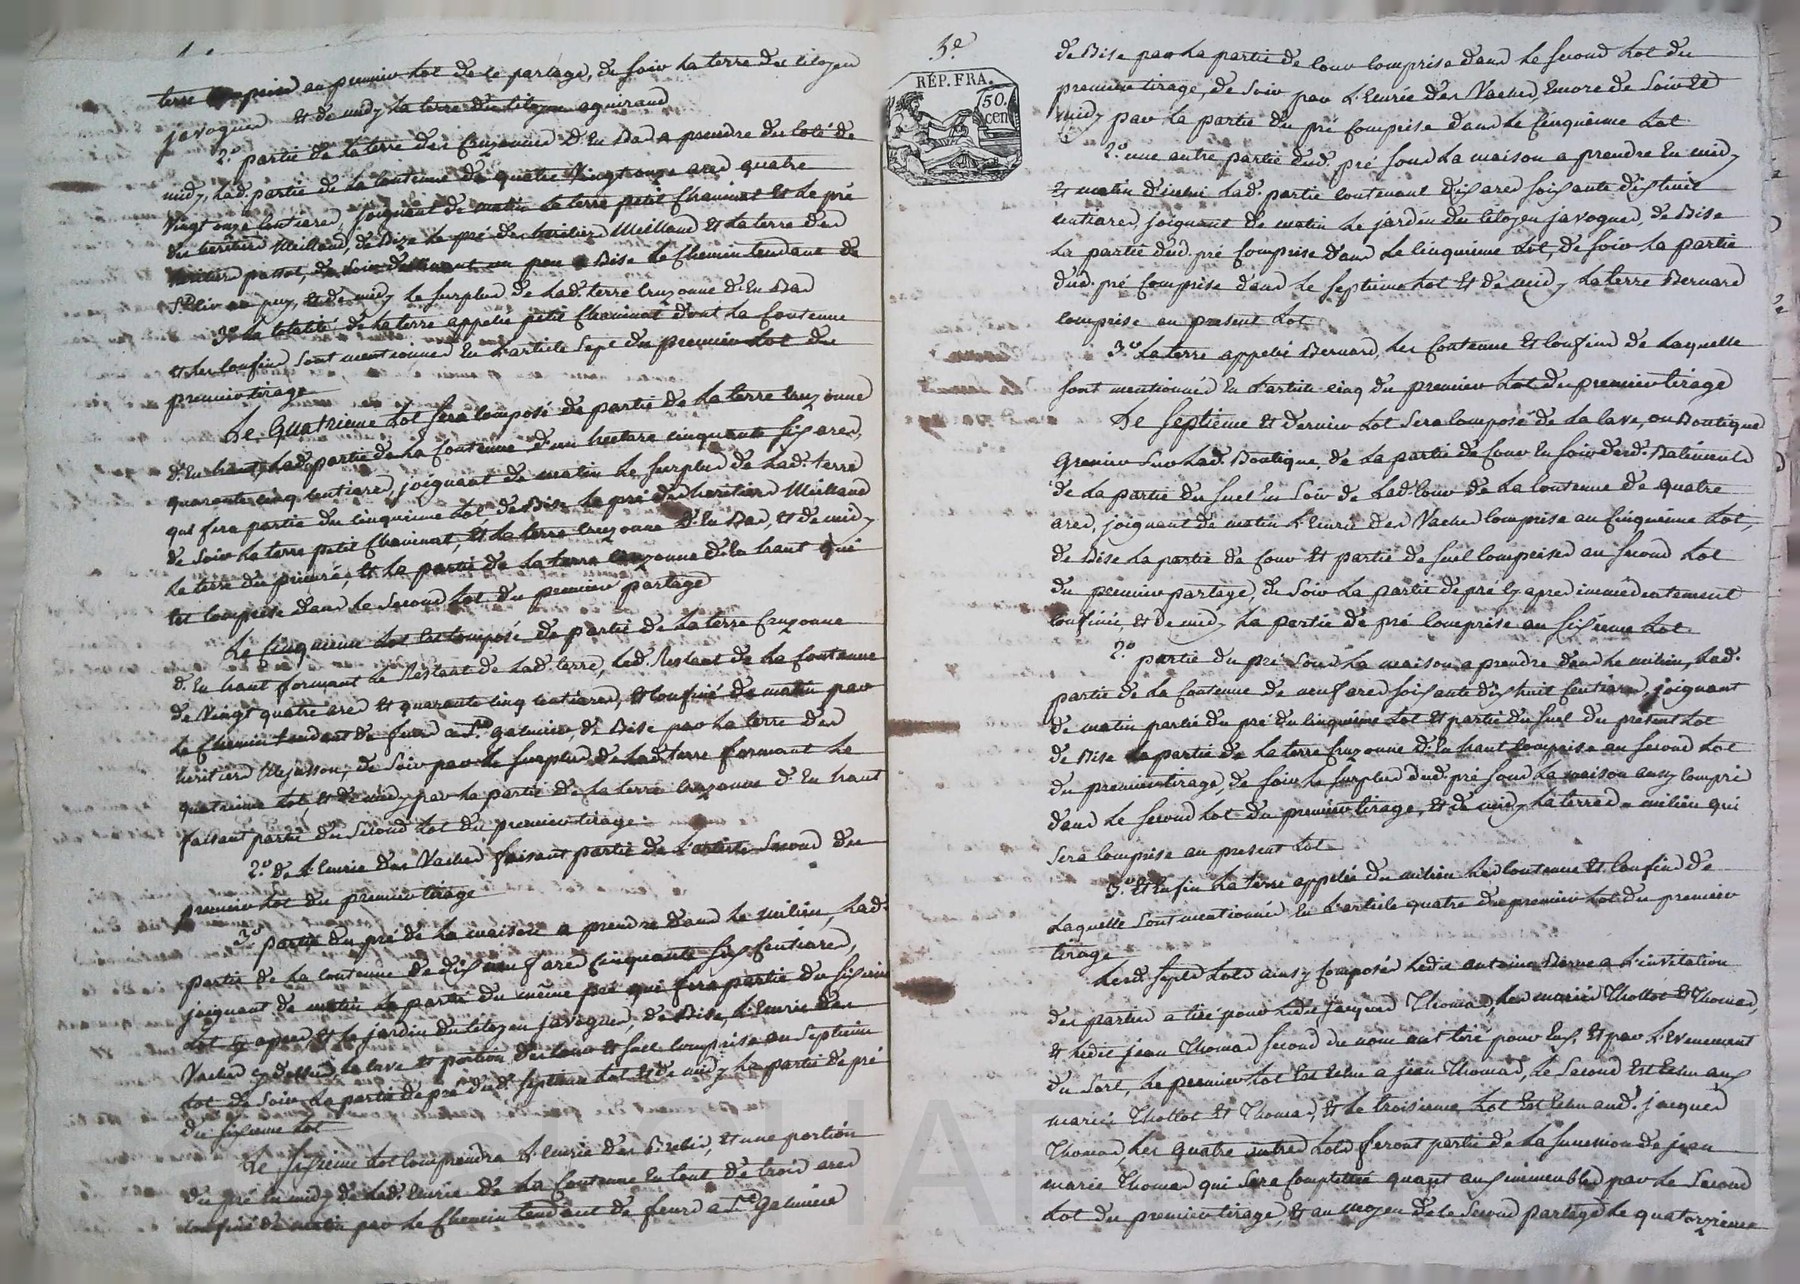 terre comprise au premier Lot de ce partage, de soir La terre du Citoyen
javogues et de midy La terre du Citoyen aguiraud
2.º partie de La terre des Cruzonne d'En Bas a prendre du Coté de
midy, Lad. partie de La Contenue de quatre Vingt onze ares quatre
Vingt onze Centiares, joignant de matin La terre petit Chavinat et Le pré
des heritiers Meilland, de Bize Le pré des heritiers Meilland et La terre des
heritiers passot, de soir declinant un peu a Bise Le Chemin tendant de
St. liv au puy, et de midy Le surplus de Lad. terre Cruzonne d'En Bas
3.º La totalité de La terre appellée petit Chavinat dont La Contenue
et Les Confins sont mentionnés En L'article Sept du premier Lot du
premier tirage
Le Quatrieme Lot sera Composé de partie de La terre Cruzonne
d'En haut, Lad. partie de La Contenue d'un hectare cinquante six ares,
quarante cinq Centiares, joignant de matin Le surplus de Lad. terre
qui fera partie du Cinquieme Lot de Bise Le pré des heritiers Meilland
de Soir La terre petit Chavinat, et La terre Cruzonne d'En Bas, et de midy
La terre du prieuré et La partie de La terre Cruzonne d'En haut qui
Est Comprise dans Le Second Lot du premier partage
Le Cinquieme Lot Est Composé de partie de La terre Cruzonne
d'En haut formant Le Restant de Lad. terre, Led. Restant de La Contenue
de Vingt quatre ares et quarante Cinq Centiares, et Confiné de matin par
Le Chemin tendant de feurs a St. galmier, de Bise par La terre des
heritiers Dejusson, de Soir par Le surplus de Lad. terre formant Le
quatrieme Lot et de midy par La partie de La terre Cruzonne d'En haut
faisant partie du Second Lot du premier tirage
2.º de L'Ecurie des Vaches faisant partie de L'article Second du
premier Lot du premier tirage
3.º partie du pré de La maison a prendre dans Le Milieu, Lad.
partie de La Contenue de dix neuf ares Cinquante six Centiares,
joignant de matin La partie du même pré qui fera partie du sixieme
Lot Cy apres et Le jardin du Citoyen javogues, de Bise, L'Ecurie des
Vaches Cy dessus, La Cave et portion de Cour et suel Comprise au Septieme
Lot de Soir La partie de pré dud. septieme Lot et de midy La partie de pré
du sixieme Lot
Le Sixieme Lot Comprendra L'Ecurie des Brebis, et une portion
du pré En midy de Lad. Ecurie de La Contenue En tout de trois ares
Confiné de matin par Le Chemin tendant de feurs a St. Galmier
5.e
RÉP. FRA.
50.
cen
de Bise par La partie de Cour Comprise dans Le Second Lot du
premier tirage, de Soir par L'Ecurie des Vaches, Encore de Soir Et
midy par La partie du pré Comprise dans Le Cinquieme Lot
2.º une autre partie dud. pré sous La maison a prendre En midy
et matin d'icelui Lad. partie Contenant dix ares soixante dix huit
Centiares, joignant de matin Le jardin du Citoyen javogues, de Bise
La partie dud. pré Comprise dans Le Cinquieme Lot, de Soir La partie
dud. pré Comprise dans Le septieme Lot et de midy La terre Bernard
Comprise au present Lot
3.º La terre appellée Bernard, Les Contenue et Confins de Laquelle
sont mentionnés En L'article Cinq du premier Lot du premier tirage
Le Septieme et dernier Lot Sera Composé de La Cave, ou Boutique
Grenier sur Lad. Boutique, de La partie de Cour En Soir desd. Batiments
de La partie du suel En Soir de Lad. Cour de La Contenue de quatre
ares, joignant de matin L'Ecurie des Vaches Comprise au Cinquieme Lot,
de Bise La partie de Cour et partie de suel Comprises au Second Lot
du premier partage, de Soir La partie de pré Cy apres immediatement
Confinée, et de midy La partie de pré Comprise au sixieme Lot.
2.º partie du pré Sous La maison a prendre dans Le milieu, Lad.
partie de La Contenue de neuf ares soixante dix huit Centiares, joignant
de matin partie du pré du Cinquieme Lot et partie du suel du present Lot
de Bise La partie de La terre Cruzonne d'En haut Comprise au Second Lot
du premier tirage, de Soir Le surplus dud. pré sous La maison aussy Compris
dans Le Second Lot du premier tirage, et de midy La terre du milieu qui
Sera Comprise au present Lot
3.º Et Enfin La terre appellée du milieu Les Contenue et Confins de
Laquelle Sont mentionnés En L'article quatre du premier Lot du premier
tirage
Lesd. Sept Lots ainsy Composés Ledit antoine Bierne a L'invitation
des parties a tiré pour Ledit jacques Thomas, Les mariés Thollot et Thomas,
et Ledit jean Thomas Second du nom ont tiré pour Eux, et par L'Evenement
du Sort, Le premier Lot Est Echu a jean Thomas, Le Second Est Echu aux
mariés Thollot et Thomas, et Le troisieme Lot Est Echu aud. jacques
Thomas, Les quatre autres Lots feront partie de La Succession de jean
marie Thomas qui Sera Complettée quant aux immeubles par Le Second
Lot du premier tirage, et au moyen de Le Second partage Le quatorzieme